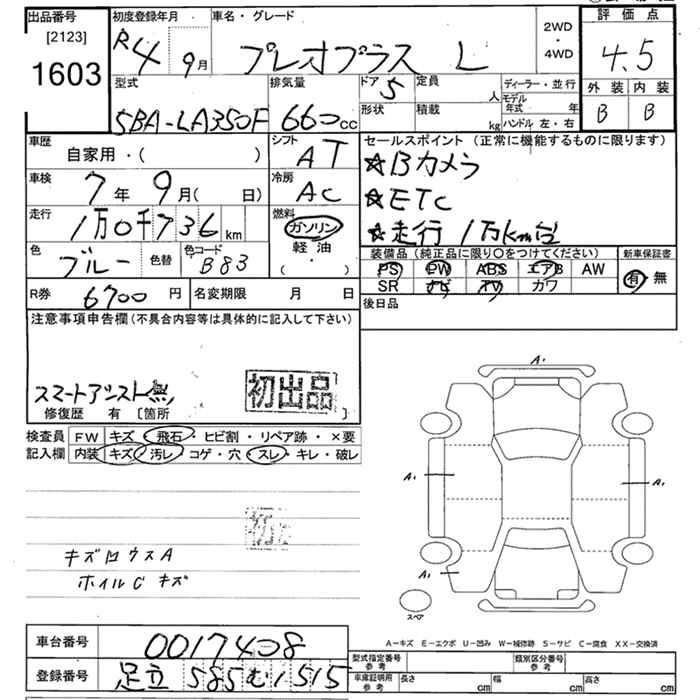 出品番号
[2123]
1603
初度登録年月
R4 9月
車名・グレード
プレオプラス L
2WD
・
4WD
評価点
4.5
外装 内装
B B
型式
5BA-LA350F
排気量
660cc
ドア 5
形状
定員 人
積載 kg
ディーラー・並行
モデル年式 年
ハンドル 左・右
車歴
自家用・( )
シフト
AT
車検
7年 9月( 日)
冷房
AC
走行
1万0千736km
燃料
ガソリン
軽・油
( ・ )
色
ブルー
色替
色コード
B83
R券 6700円
名変期限 月 日
セールスポイント(正常に機能するものに限ります)
☆Bカメラ
☆ETC
☆走行1万km台
装備品(純正品に限り○をつけてください)
PS PW ABS エアB AW
SR ナビ TV カワ
新車保証書
有 無
後日品
注意事項申告欄(不具合内容等は具体的に記入して下さい)
スマートアシスト無
初出品
修復歴 有 [箇所 ]
検査員記入欄
FW キズ・飛石・ヒビ割・リペア跡・×要
内装 キズ・汚レ・コゲ・穴・スレ・キレ・破レ
キズロウスA
ホイルCキズ
A1
A1
A1
A1
スペア
A-キズ E-エクボ U-凹み W-補修跡 S-サビ C-腐食 XX-交換済
車台番号 0017408
登録番号 足立 585 む 1515
型式指定番号 参考
類別区分番号 参考
車庫証明用 参考
長さ cm 幅 cm 高さ cm